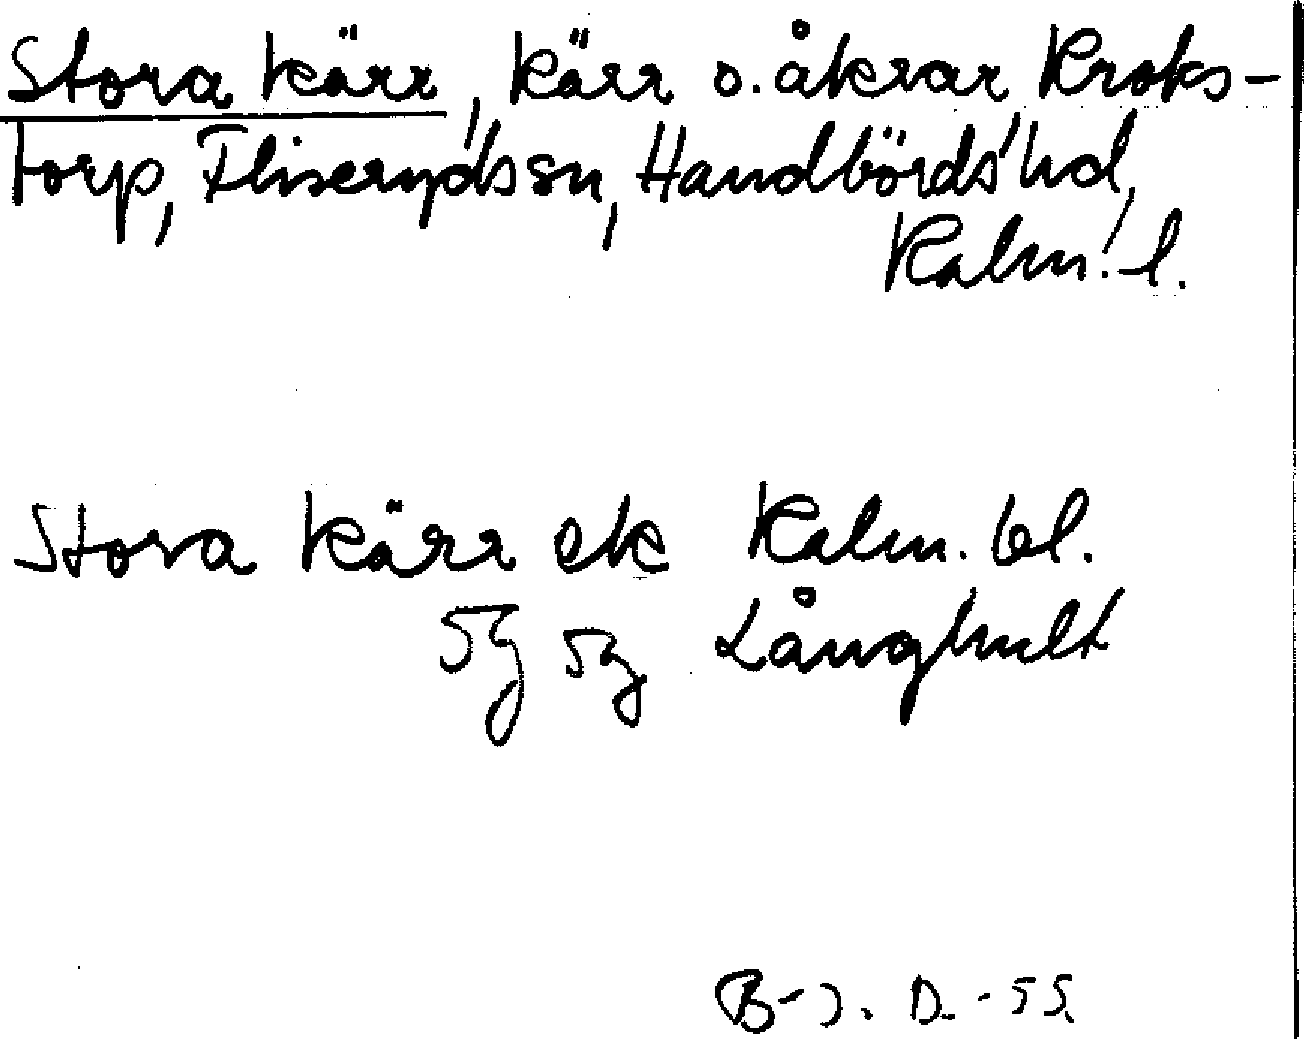 Stora kärr, kärr o. åkrar Kroks-
torp, Fliseryds sn, Handbörds hd,
Kalm. l.
Stora kärr ek Kalm. bl.
5g 5g Långhult
B-J. D. -55.